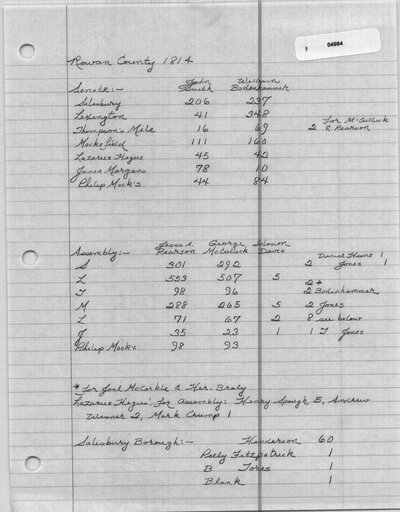 04984
Rowan County 1814
Senate:- John Smith William Bodenhammer
Salisbury 206 237
Lexington 41 348 For McCulloch
Thompson's Mile 16 69 2 & Pearson
Mocksfield 111 160
Lazarus Hogus 45 42
James Morgans 78 10
Philip Mock's 44 84
Assembly:- Jesse A. Pearson George McCulloch Solomon Davis Daniel Hunt 1
S 301 292 2 Jones 1
L 523 507 5 2*
T 98 96 2 Bodenhammer
M 288 265 5 2 Jones
L 71 67 2 8 see below
J 35 23 1 1 T Jones
Philip Mock's 98 93
* For Joel McCorkle & Har. Braly
Lazarus Hogus', for Assembly: Henry Spaugh 5, Andrew
Wesner 2, Mark Crump 1
Salisbury Borough:- Henderson 60
Polly Fitzpatrick 1
B Tores 1
Blank 1